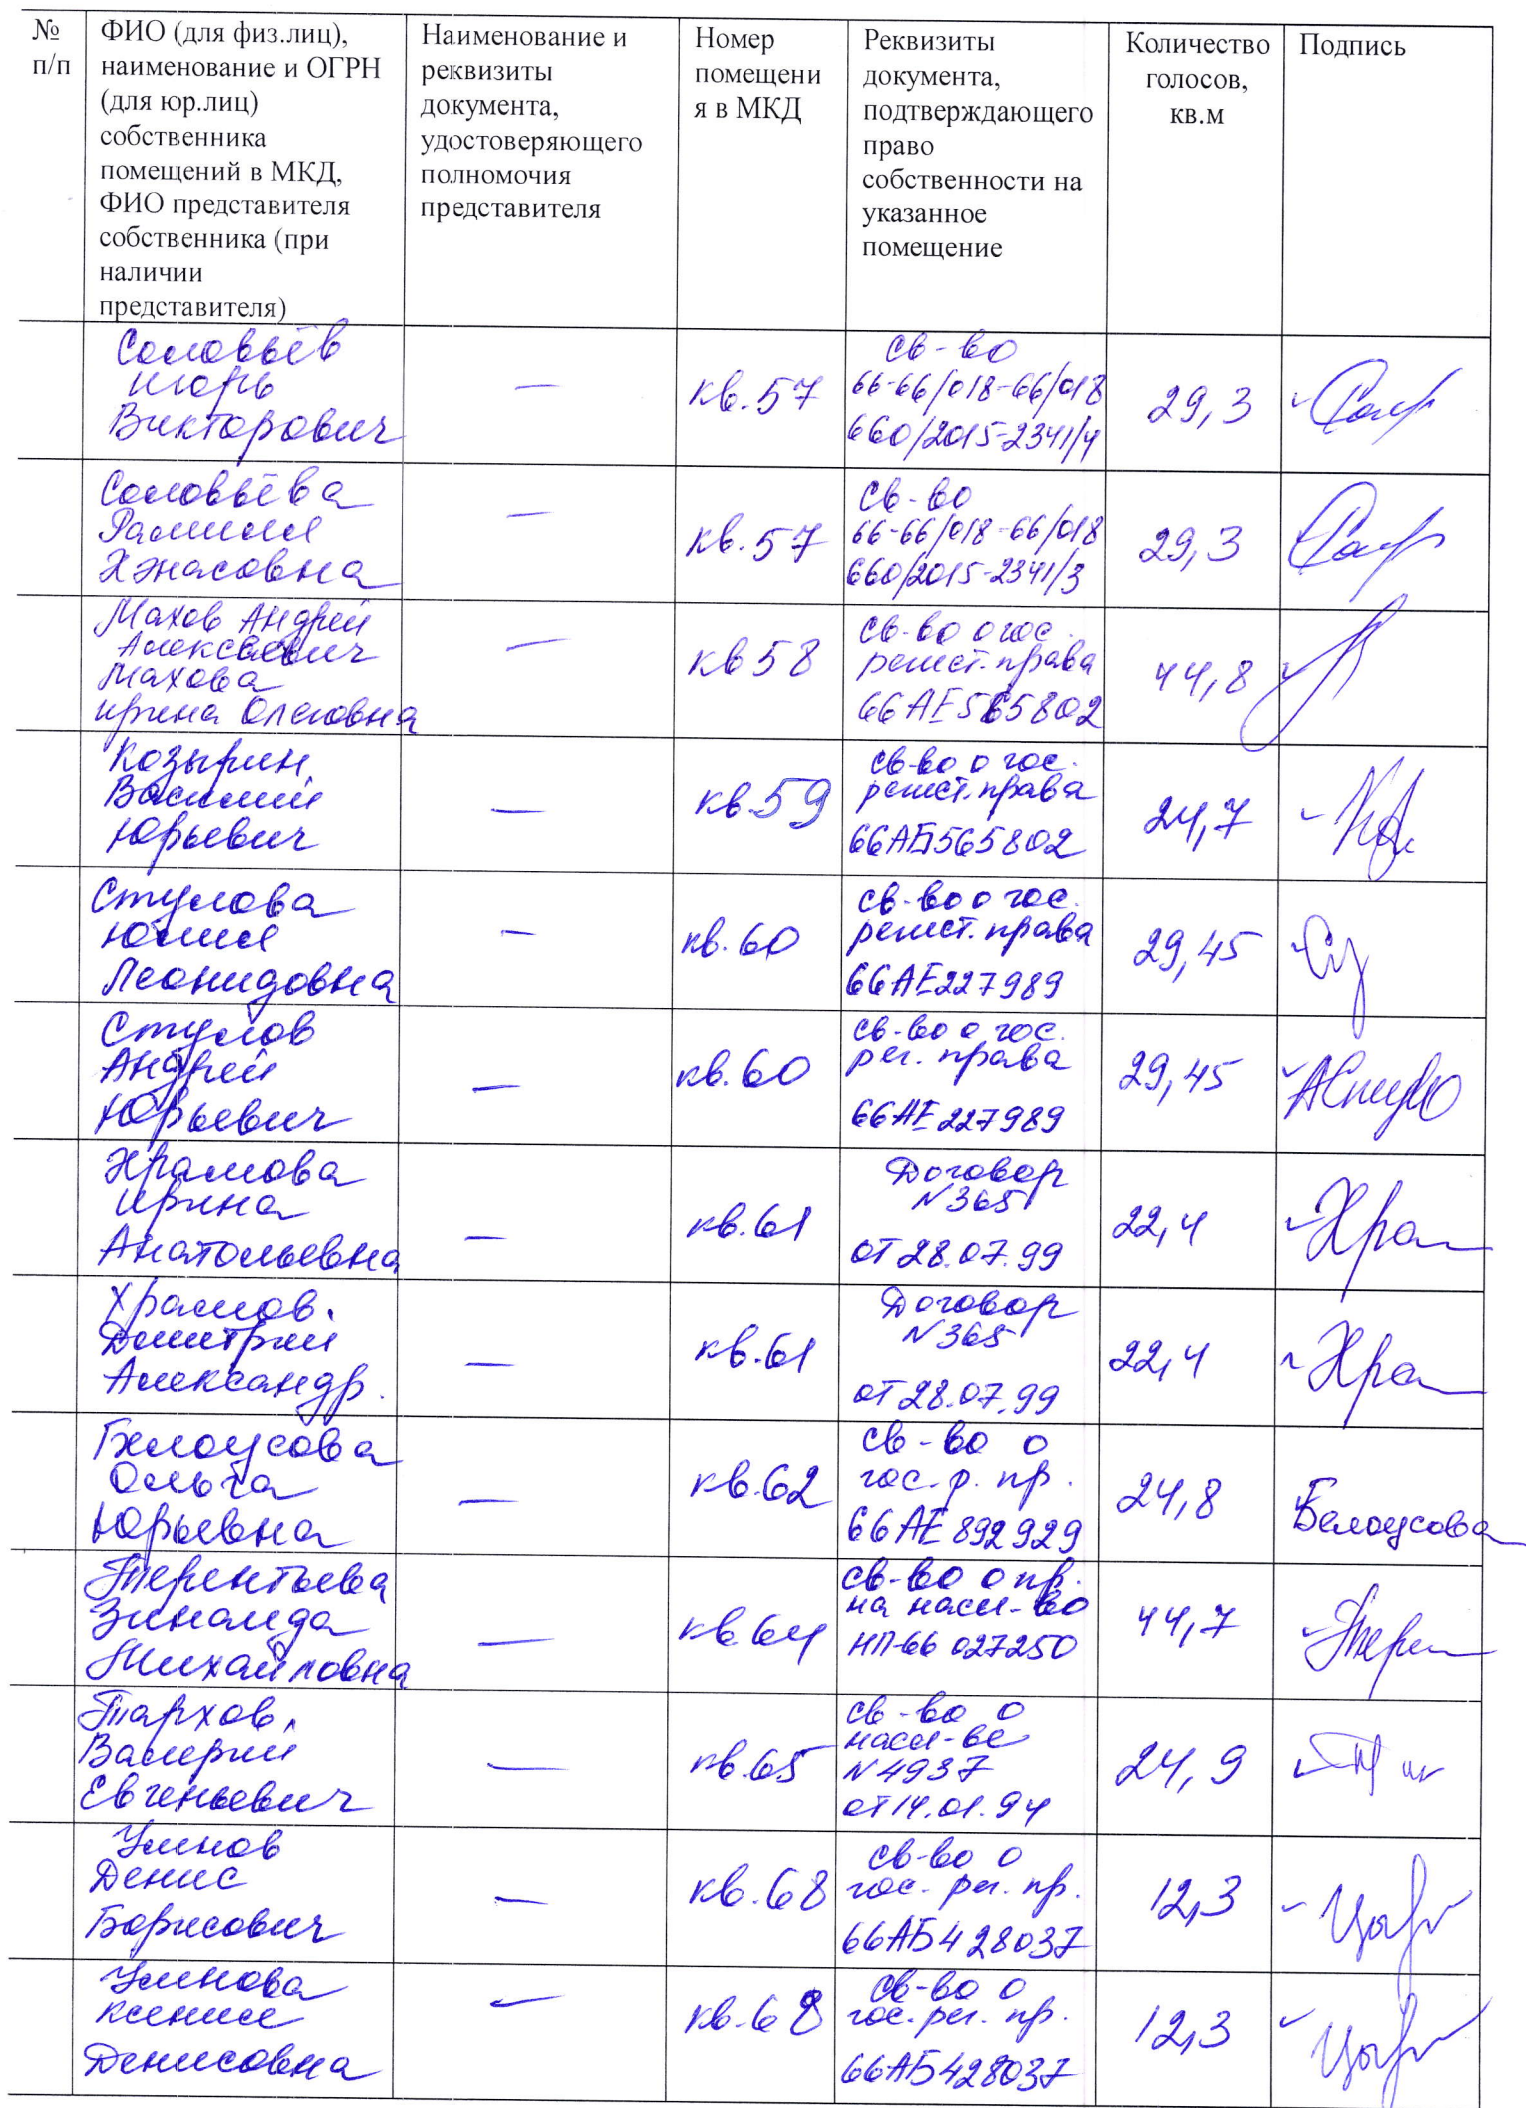 № п/п
ФИО (для физ.лиц),
наименование и ОГРН
(для юр.лиц)
собственника
помещений в МКД,
ФИО представителя
собственника (при
наличии
представителя)
Наименование и
реквизиты
документа,
удостоверяющего
полномочия
представителя
Номер
помещени
я в МКД
Реквизиты
документа,
подтверждающего
право
собственности на
указанное
помещение
Количество
голосов,
кв.м
Подпись
Соловьёв
Игорь
Викторович
—
кв.57
св-во
66-66/018-66/018
660/2015-2341/4
29,3
Соловьёва
Рамиля
—
кв.57
св-во
66-66/018-66/018
660/2015-2341/3
29,3
Махов Андрей
Алексеевич
Махова
Ирина Олеговна
—
кв 58
св-во о гос.
регист. права
66 АЕ 565802
44,8
Козырин
Василий
Юрьевич
—
кв.59
св-во о гос.
регист. права
66АБ565802
24,7
Стулова
Юлия
Леонидовна
—
кв.60
св-во о гос.
регист. права
66АЕ227989
29,45
Стулов
Андрей
Юрьевич
—
кв.60
св-во о гос.
рег. права
66АЕ 227989
29,45
Храмова
Ирина
Анатольевна
—
кв.61
Договор
N365
от 28.07.99
22,4
Хра
Храмов.
Дмитрий
Александр.
—
кв.61
Договор
N365
от 28.07.99
22,4
Хра
Белоусова
Ольга
Юрьевна
—
кв.62
св-во о
гос. р. пр.
66 АЕ 892929
24,8
Белоусова
Терентьева
Зинаида
Михайловна
—
кв 64
св-во о пр.
на насл-во
НП-66 027250
44,7
Тархов.
Валерий
Евгеньевич
—
кв.65
св-во о
насл-ве
N 4937
от 14.01.94
24,9
Уминов
Денис
Борисович
—
кв.68
св-во о
гос. рег. пр.
66АБ428037
12,3
Уминова
Ксения
Денисовна
—
кв.68
св-во о
гос. рег. пр.
66АБ428037
12,3